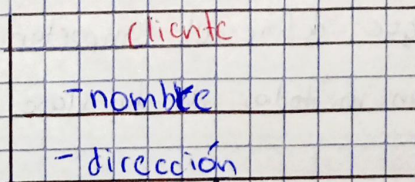 cliente
- nombre
- dirección